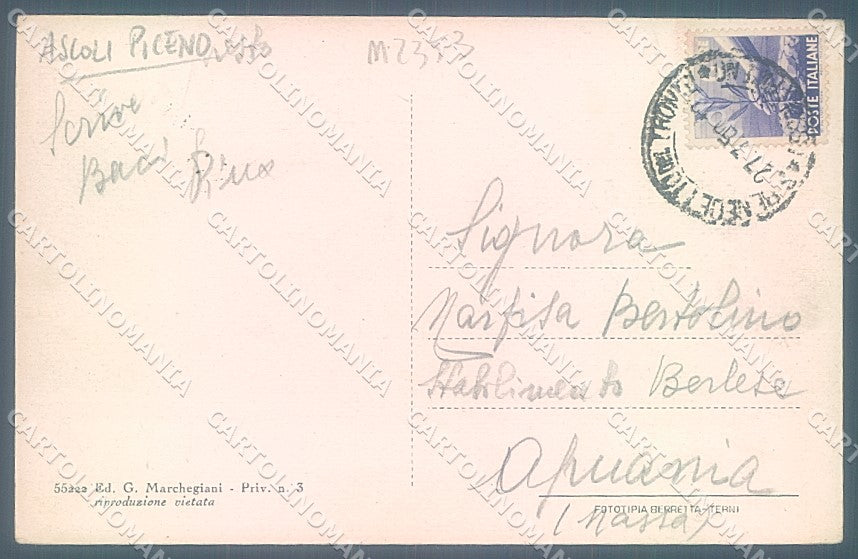 ASCOLI PICENO
Scrive
Baci
Signora
Marfisa Bertolino
Stabilimento Berlese
Apuania
(Massa)
POSTE ITALIANE
55222 Ed. G. Marchegiani - Priv. n. 3
riproduzione vietata
FOTOTIPIA BERRETTA-TERNI
CARTOLINOMANIA